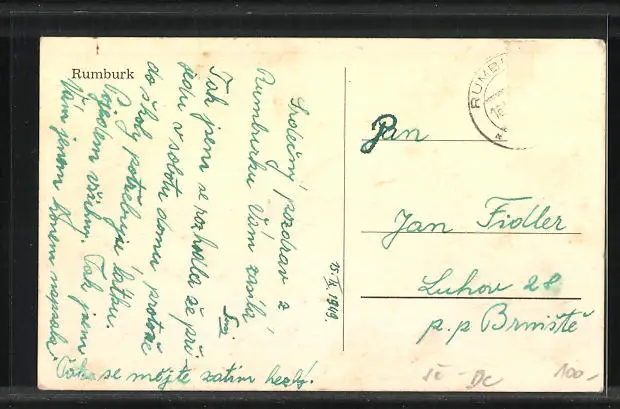 Rumburk
Srdečný pozdrav z
Rumburku Vám zasílá
Tak jsem se rozhodla že při-
jedu v sobotu domů protože
do školy potřebuju látku.
Vám jenom
Tak se mějte zatím hezky!
15. 1949.
RUMB
Pan
Jan Fidler
Luhov 28
p.p Brniště
Dc
100-